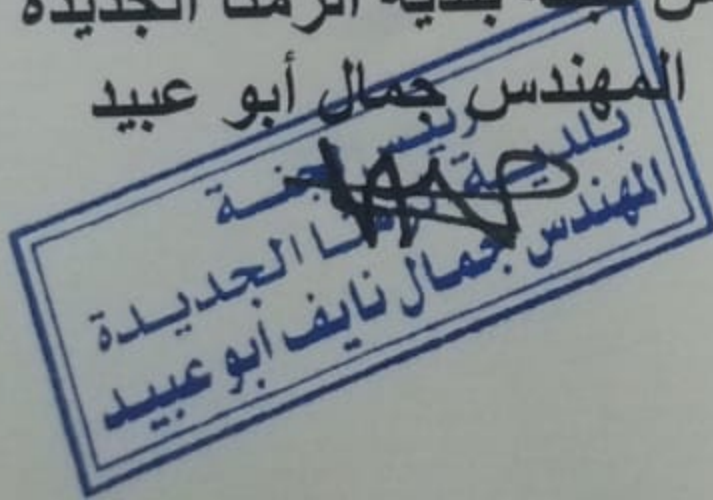 بلدية الرمثا الجديدة
المهندس جمال أبو عبيد
رئيس لجنة
بلدية الرمثا الجديدة
المهندس جمال نايف أبو عبيد